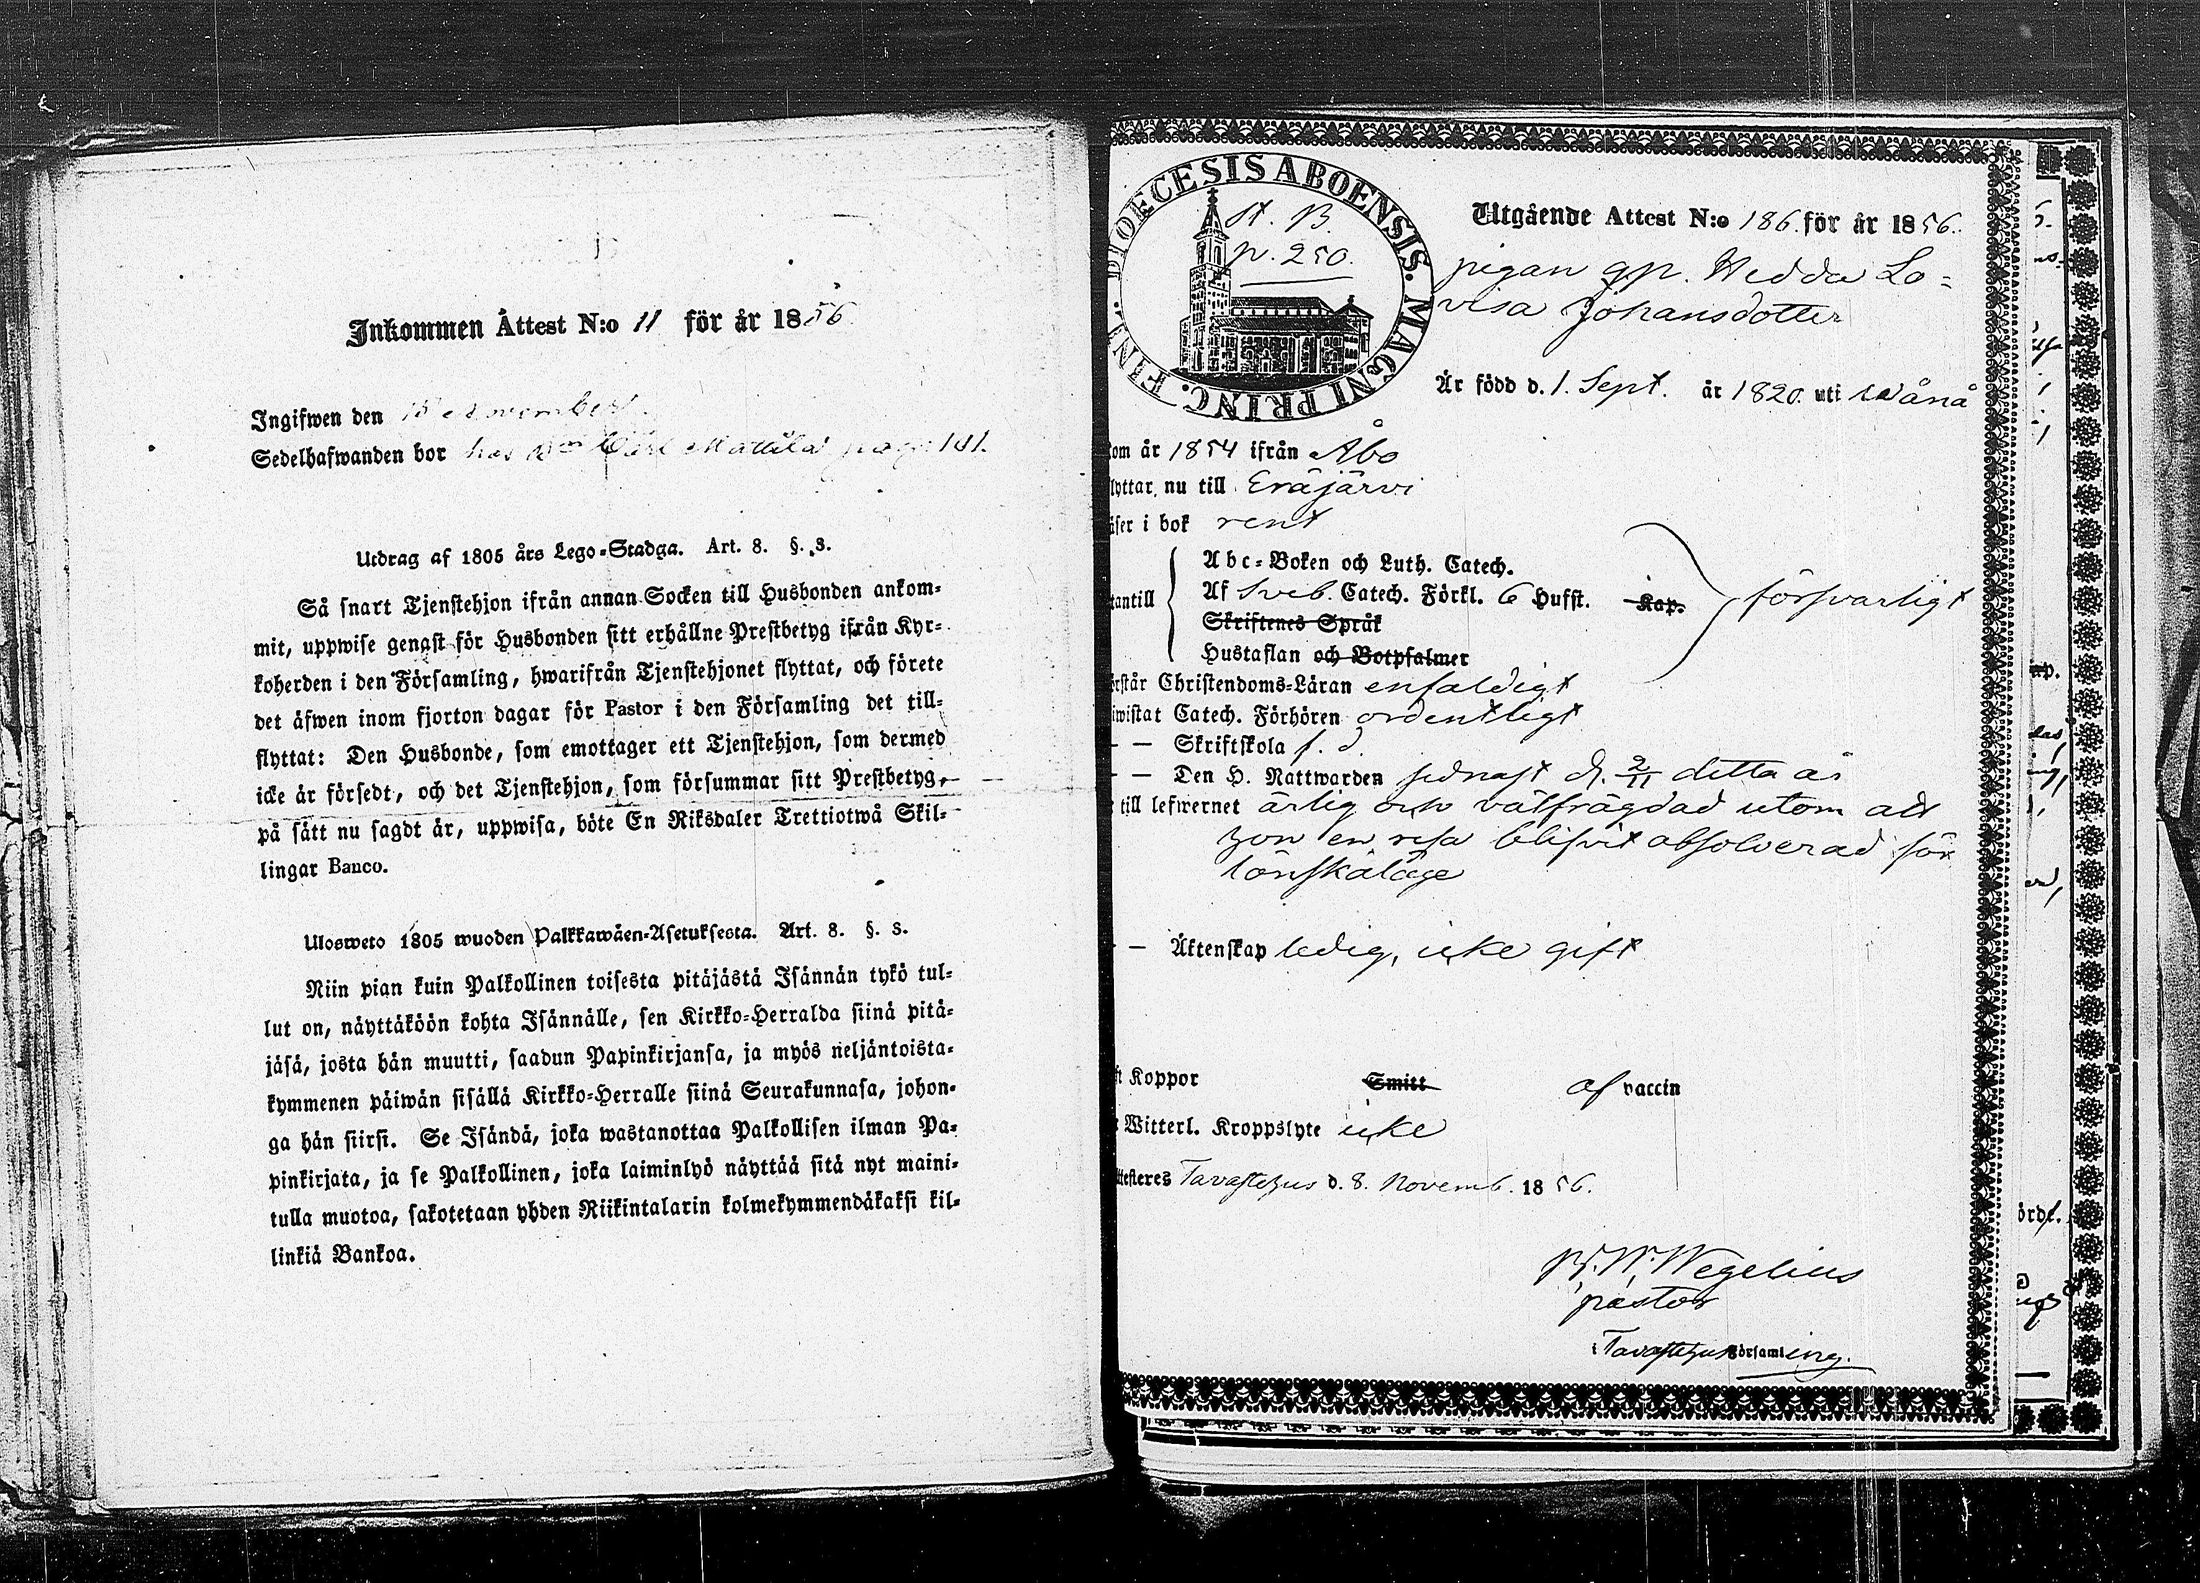 Inkommen Attest N:o 11 för år 1856
Ingifwen den 15 November
Sedelhafwanden bor hos Carl Mattila pag. 181.
Utdrag af 1805 års Lego-Stadga. Art. 8. §. 3.
Så snart Tjenstehjon ifrån annan Socken till Husbonden ankom-
mit, uppwise genast för Husbonden sitt erhållne Prestbetyg ifrån Kyr-
koherden i den Församling, hwarifrån Tjenstehjonet flyttat, och förete
det äfwen inom fjorton dagar för Pastor i den Församling det till-
flyttat: Den Husbonde, som emottager ett Tjenstehjon, som dermed
icke är försedt, och det Tjenstehjon, som försummar sitt Prestbetyg,
på sätt nu sagdt är, uppwisa, böte En Riksdaler Trettiotwå Skil-
lingar Banco.
Ulosweto 1805 wuoden Palkkawäen-Asetuksesta. Art. 8. §. 3.
Niin pian kuin Palkollinen toisesta pitäjästä Isännän tykö tul-
lut on, näyttäköön kohta Isännälle, sen Kirkko-Herralda siinä pitä-
jäsä, josta hän muutti, saadun Papinkirjansa, ja myös neljäntoista-
kymmenen päiwän sisällä Kirkko-Herralle siinä Seurakunnasa, johon-
ga hän siirsi. Se Isändä, joka wastanottaa Palkollisen ilman Pa-
pinkirjata, ja se Palkollinen, joka laiminlyö näyttää sitä nyt maini-
tulla muotoa, sakotetaan yhden Riikintalarin kolmekymmendäkaksi kil-
linkiä Bankoa.
DIOECESIS ABOENSIS. MAGNI PRINC. FINL.
St. B.
p. 250.
Utgående Attest N:o 186. för år 1856.
pigan gp. Hedda Lo-
visa Johansdotter
Är född d. 1. Sept. år 1820. uti Wånå
om år 1854 ifrån Åbo
lyttar nu till Eräjärvi
äser i bok rent
Abc-Boken och Luth. Catech.
tantill Af Sveb. Catech. Förkl. 6 Hufst. Kap. försvarligt
Skriftenes Språk
Hustaflan och Botpsalmer
rstår Christendoms-Läran enfaldigt
iwistat Catech. Förhören ordentligt
— — Skriftskola f. d.
— — Den H. Nattwarden sednast d. 2/11 detta år
till lefwernet ärlig och välfrägdad utom att
hon en resa blifvit absolverad för
lönskaläge
— — Äktenskap ledig, icke gift
ft Koppor Smitt af vaccin
Witterl. Kroppslyte icke
ttesteres Tavastehus d. 8. Novemb. 1856.
Wegelius
pastor
i Tavastehus Församling.